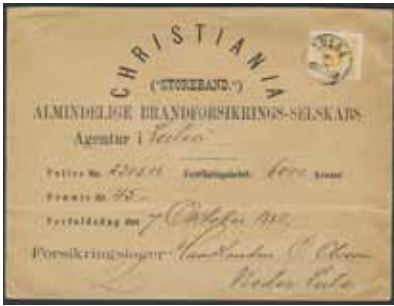 CHRISTIANIA
("STOREBAND.")
ALMINDELIGE BRANDFORSIKRINGS-SELSKABS
Agentur i
Police Nr. Forsikringsbeløb: 6000 kroner
Præmie kr. 45.
Forfaldsdag den 7 Oktober
Forsikringstager: P. Olsen
Nedre